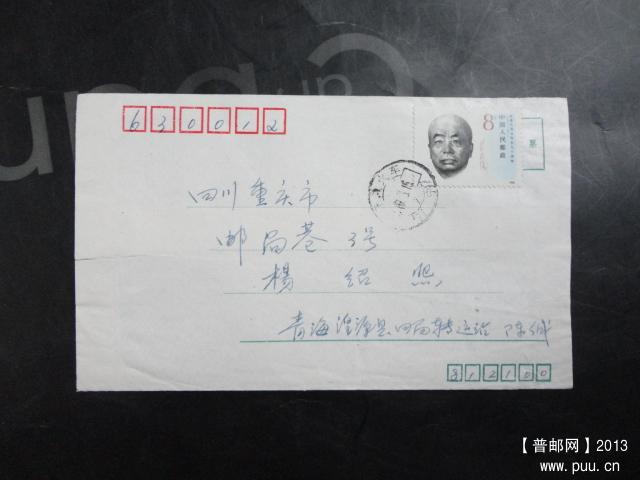 630012
8分
中国人民邮政
四川重庆市
邮局巷 3号
楊 绍 熙
青海湟源县四局转运站 陈
812100
【普邮网】2013
www.puu.cn